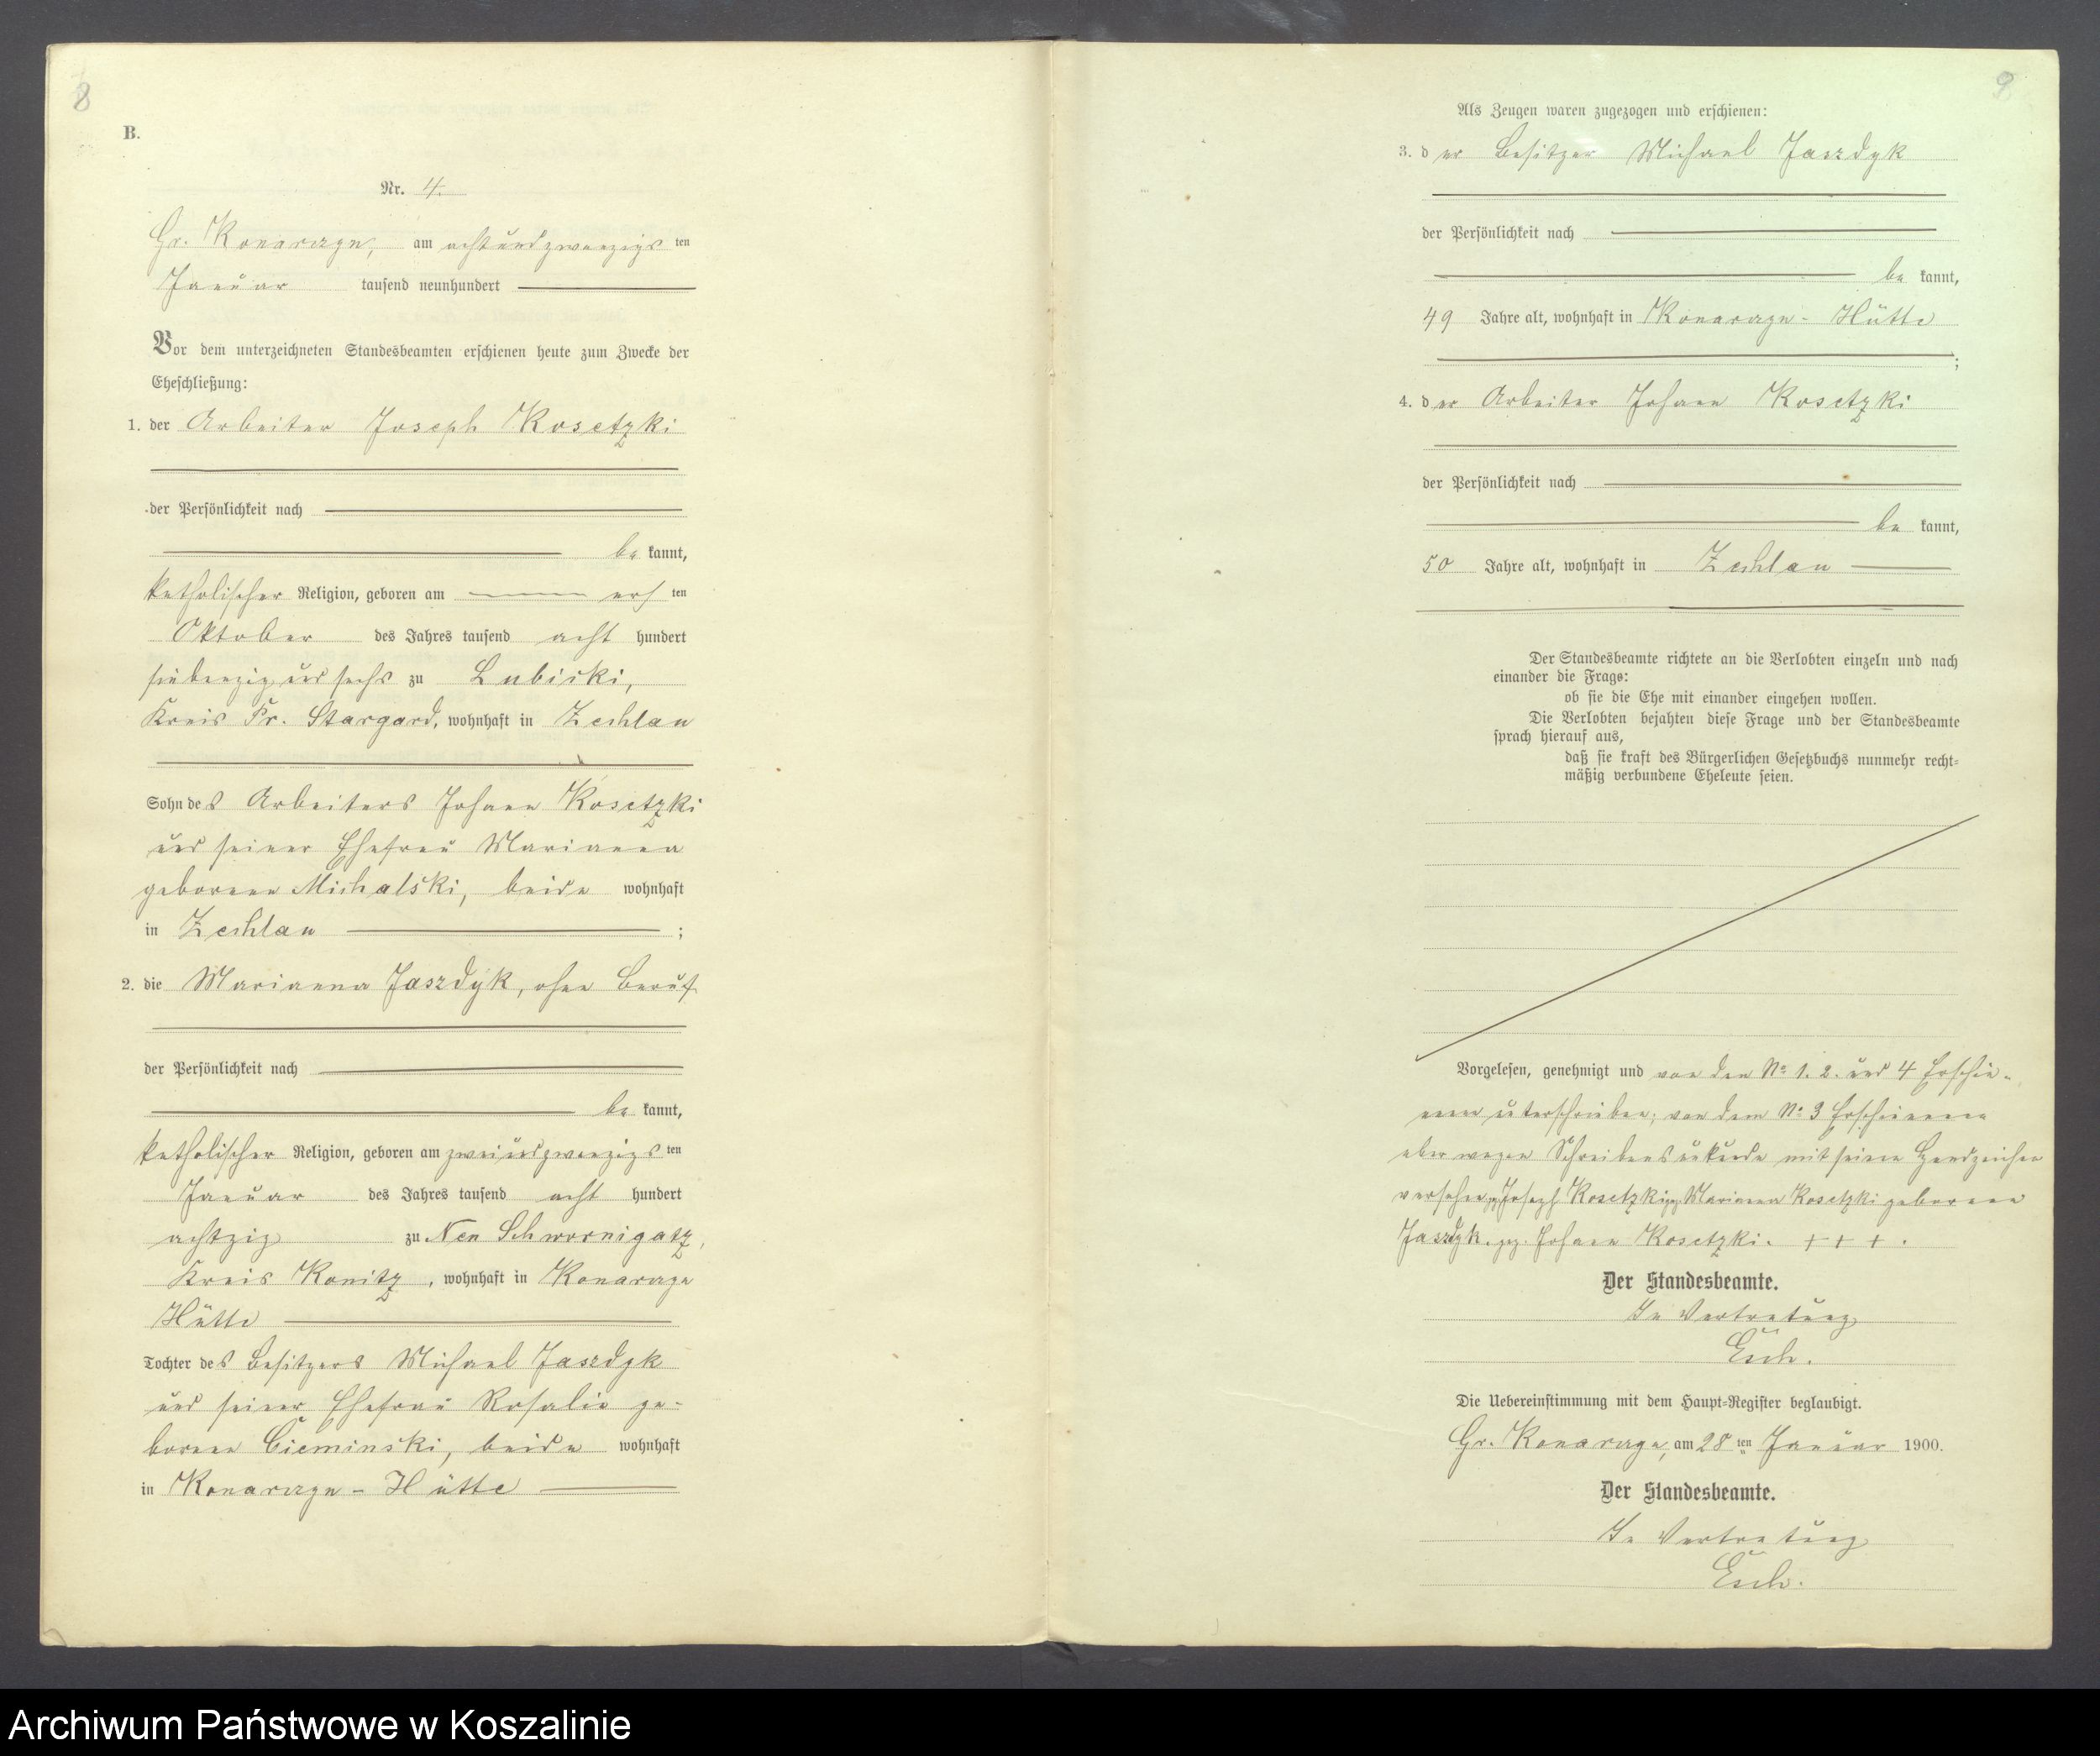 8
B.
Nr. 4.
Gr. Konarczyn, am achtundzwanzigsten
Januar tausend neunhundert
Vor dem unterzeichneten Standesbeamten erschienen heute zum Zwecke der
Eheschließung:
1. der Arbeiter Joseph Kosetzki
der Persönlichkeit nach
be kannt,
katholischer Religion, geboren am ersten
Oktober des Jahres tausend acht hundert
siebenzig und sechs zu Lubicki,
Kreis Pr. Stargard, wohnhaft in Zechlau
Sohn des Arbeiters Johann Kosetzki
und seiner Ehefrau Marianna
geborene Michalski, beide wohnhaft
in Zechlau ;
2. die Marianna Jaszdyk, ohne Beruf
der Persönlichkeit nach
be kannt,
katholischer Religion, geboren am zweiundzwanzigsten
Januar des Jahres tausend acht hundert
achtzig zu Neu Schwornigatz,
Kreis Konitz, wohnhaft in Konarczyn
Hütte
Tochter des Besitzers Michael Jaszdyk
und seiner Ehefrau Rosalie ge-
borene Cieminski, beide wohnhaft
in Konarczyn - Hütte
9
Als Zeugen waren zugezogen und erschienen:
3. der Besitzer Michael Jaszdyk
der Persönlichkeit nach
be kannt,
49 Jahre alt, wohnhaft in Konarczyn - Hütte
;
4. der Arbeiter Johann Kosetzki
der Persönlichkeit nach
be kannt,
50 Jahre alt, wohnhaft in Zechlau
Der Standesbeamte richtete an die Verlobten einzeln und nach
einander die Frage:
ob sie die Ehe mit einander eingehen wollen.
Die Verlobten bejahten diese Frage und der Standesbeamte
sprach hierauf aus,
daß sie kraft des Bürgerlichen Gesetzbuchs nunmehr recht-
mäßig verbundene Eheleute seien.
Vorgelesen, genehmigt und von den No 1. 2. und 4 Erschie-
nenen unterschrieben; von dem No 3 Erschienenen
aber wegen Schreibensunkunde mit seinen Handzeichen
versehen. gez. Joseph Kosetzki gez. Marianna Kosetzki geborene
Jaszdyk. gez. Johann Kosetzki. + + + .
Der Standesbeamte.
In Vertretung
Esch.
Die Uebereinstimmung mit dem Haupt-Register beglaubigt.
Gr. Konarczyn, am 28 ten Januar 1900.
Der Standesbeamte.
In Vertretung
Esch.
Archiwum Państwowe w Koszalinie